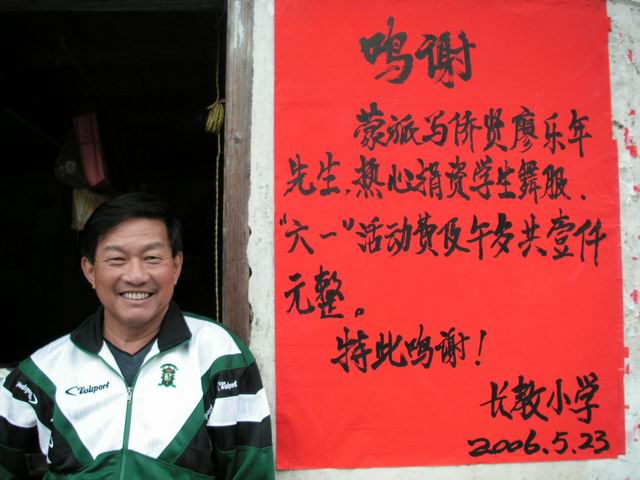 鸣谢
蒙旅马侨贤廖乐年
先生,热心捐资学生舞服、
"六一"活动费及午歺共壹仟
元整。
特此鸣谢!
长教小学
2006.5.23